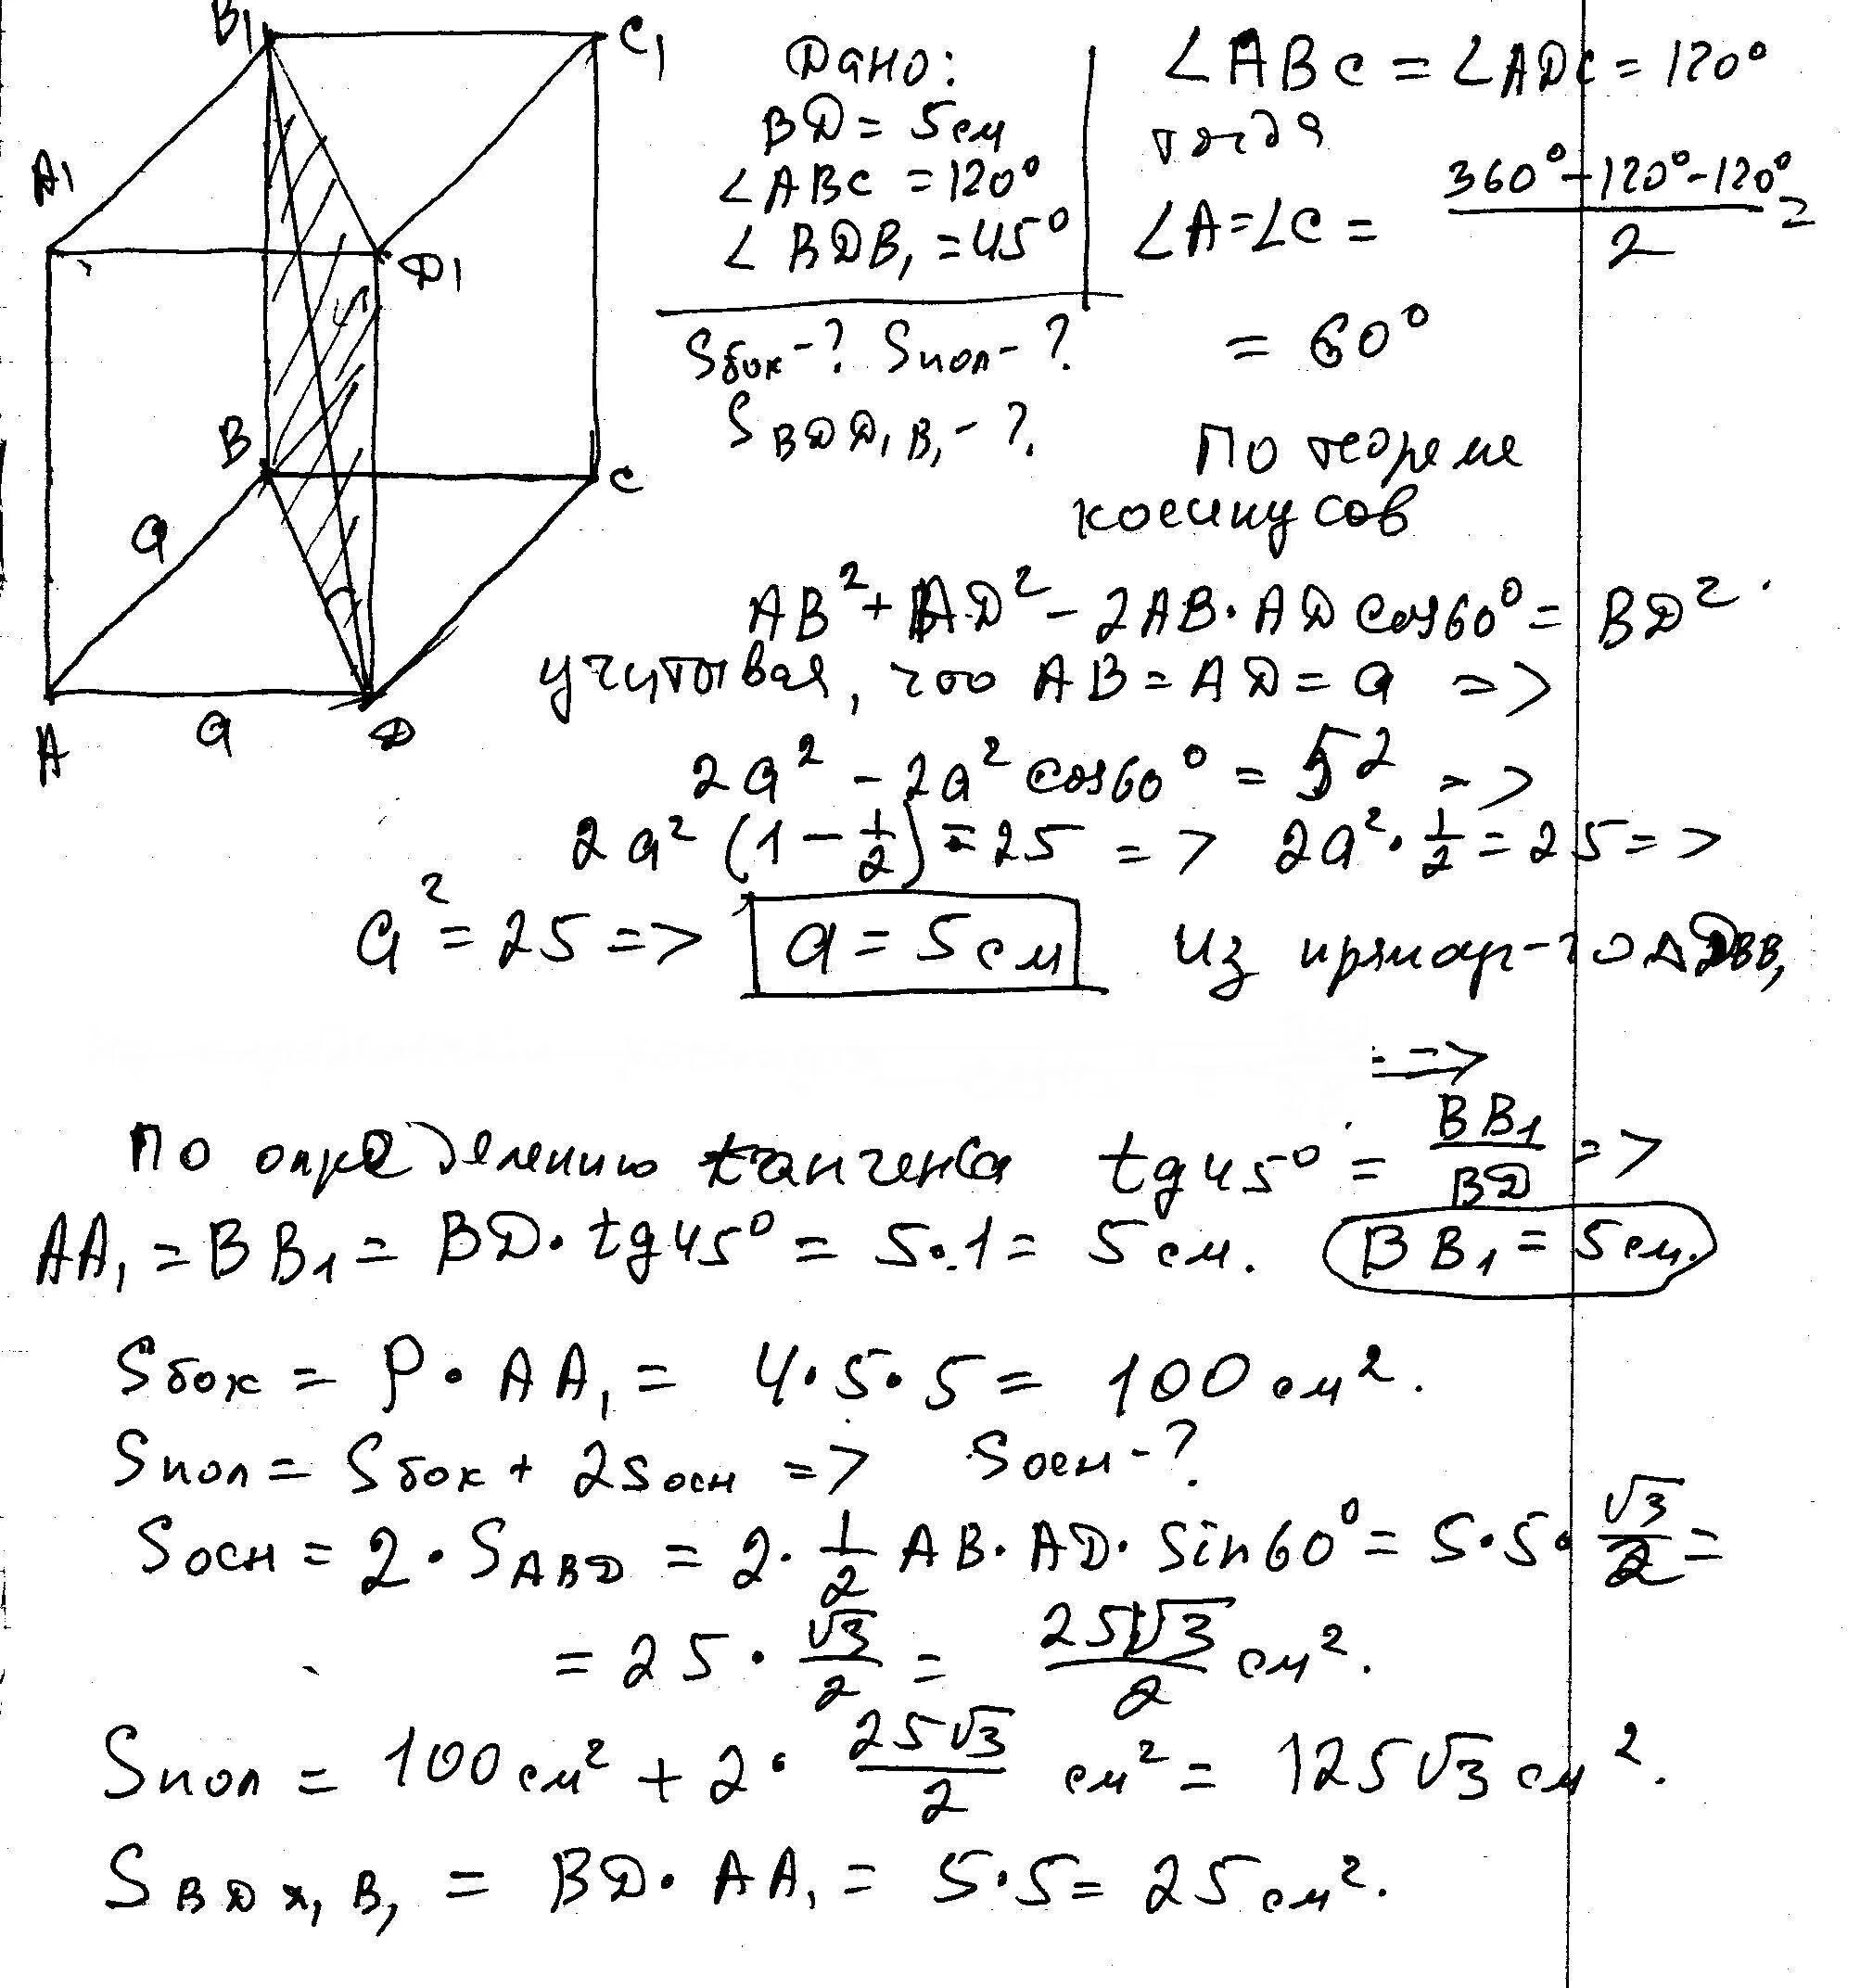 B₁ C₁
A₁ D₁
B C
a
A a D
Дано:
BD = 5 см
∠ABC = 120°
∠BDB₁ = 45°
Sбок - ? Sпол - ?
S BDD₁B₁ - ?
∠ABC = ∠ADC = 120°
тогда
∠A = ∠C = (360° - 120° - 120°)/2 =
= 60°
По теореме
косинусов
AB² + AD² - 2AB · AD cos60° = BD²
учитывая, что AB = AD = a =>
2a² - 2a² cos60° = 5² =>
2a² (1 - 1/2) = 25 => 2a² · 1/2 = 25 =>
a² = 25 => a = 5 см из прямоуг-го Δ DBB₁
=>
По определению тангенса tg45° = BB₁/BD =>
AA₁ = BB₁ = BD · tg45° = 5 · 1 = 5 см. BB₁ = 5 см.
Sбок = P · AA₁ = 4 · 5 · 5 = 100 см².
Sпол = Sбок + 2Sосн => Sосн - ?
Sосн = 2 · S ABD = 2 · 1/2 AB · AD · Sin60° = 5 · 5 · √3/2 =
= 25 · √3/2 = 25√3/2 см².
Sпол = 100 см² + 2 · 25√3/2 см² = 125√3 см².
S BDD₁B₁ = BD · AA₁ = 5 · 5 = 25 см².